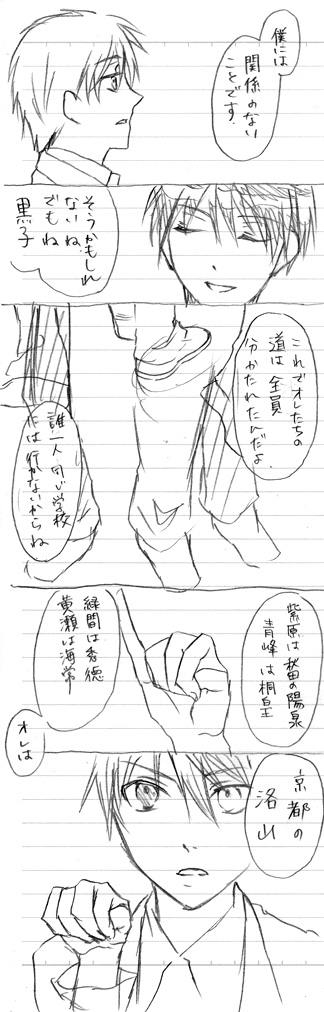 僕には
関係のない
ことです.
そうかもしれ
ないね
でもね
黒子
これでオレたちの
道は全員
分かたれたんだよ.
誰一人同じ学校
には行かないからね
紫原は秋田の陽泉
青峰は桐皇
緑間は秀徳
黄瀬は海常
オレは
京都の
洛山